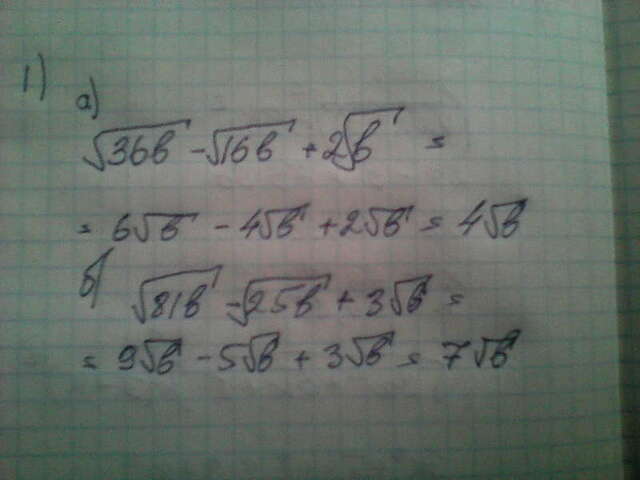 1)
а)
√36в - √16в + 2√в =
= 6√в - 4√в + 2√в = 4√в
б)
√81в - √25в + 3√в =
= 9√в - 5√в + 3√в = 7√в